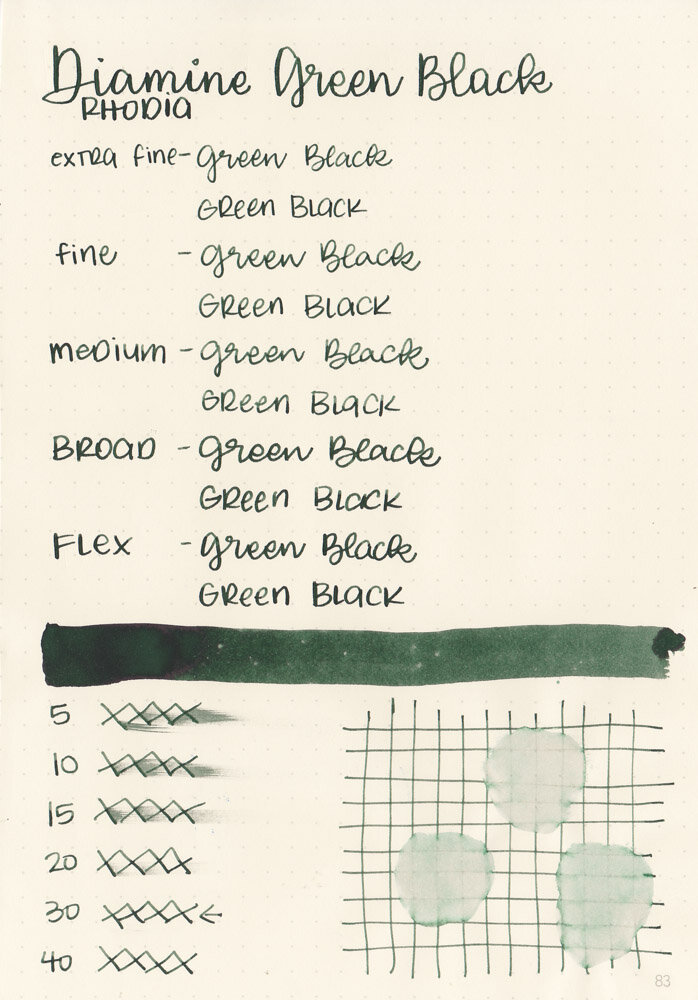 Diamine Green Black
RHODIA
extra fine - Green Black
Green Black
fine - Green Black
Green Black
medium - Green Black
Green Black
BROAD - Green Black
Green Black
Flex - Green Black
Green Black
5 XXXX
10 XXXX
15 XXXX
20 XXXX
30 XXXX ←
40 XXXX
83